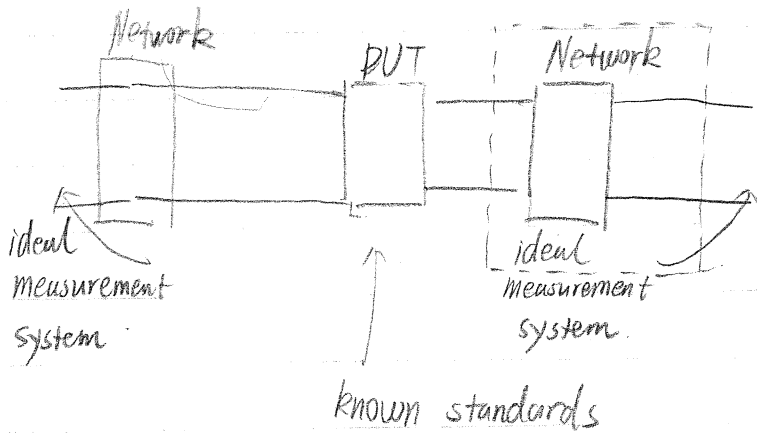 Network
DUT
Network
ideal
measurement
system.
ideal
measurement
system.
known standards